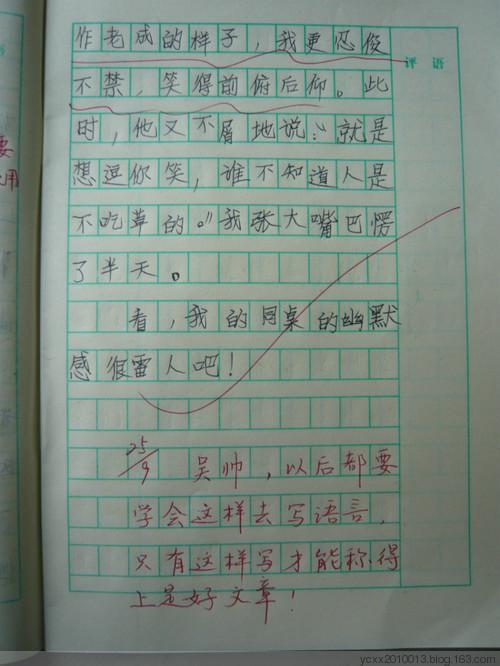 作老成的样子，我更忍俊
评语
不禁，笑得前俯后仰。此
时，他又不屑地说：“就是
要
想逗你笑，谁不知道人是
用
不吃草的。”我张大嘴巴愣
了半天。
看，我的同桌的幽默
感很雷人吧！
25/9 吴帅，以后都要
学会这样去写语言，
只有这样写才能称得
上是好文章！
ycxx2010013.blog.163.com